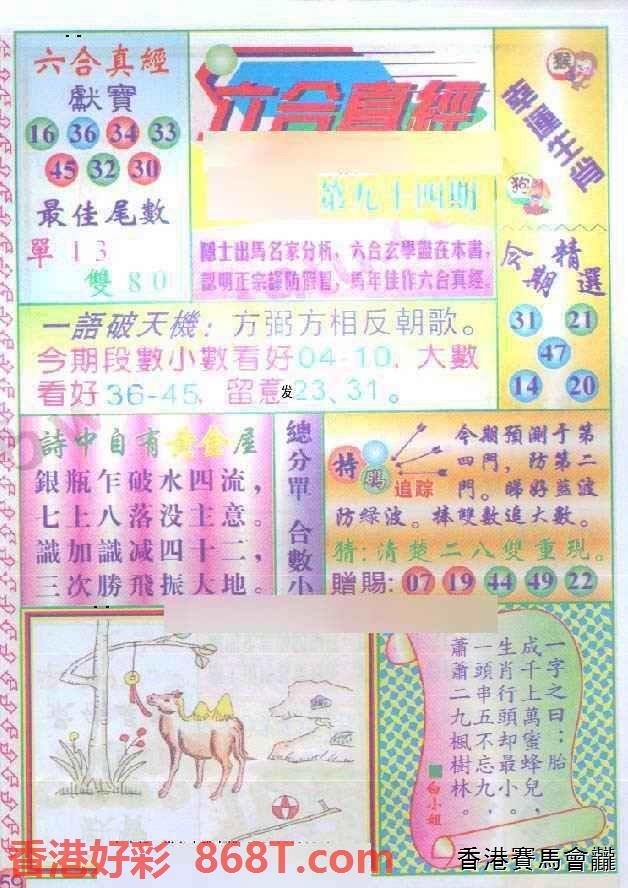 六合真經
獻寶
16 36 34 33
45 32 30
最佳尾數
單 1 3
雙 8 0
六合真經
第九十四期
隱士出馬名家分析，六合玄學盡在本書，
認明正宗謹防假冒，馬年佳作六合真經。
幸運生肖
猴
狗
今期精選
31 21
47
14 20
一語破天機：方弼方相反朝歌。
今期段數小數看好04-10，大數
看好36-45，留意23、31。
发
詩中自有黃金屋
銀瓶乍破水四流，
七上八落没主意。
識加識减四十二，
三次勝飛振大地。
總分單 合數小
特碼
追踪
今期預測于第
四門，防第二
門。睇好藍波
防綠波。捧雙數追大數。
猜：清楚二八雙重現。
贈賜：07 19 44 49 22
一字之曰：胎
成千上萬蜜蜂兒，
生肖行頭却最小。
一頭串五不忘九，
蕭蕭二九楓樹林。
白小姐
香港好彩 868T.com
香港賽馬會
59